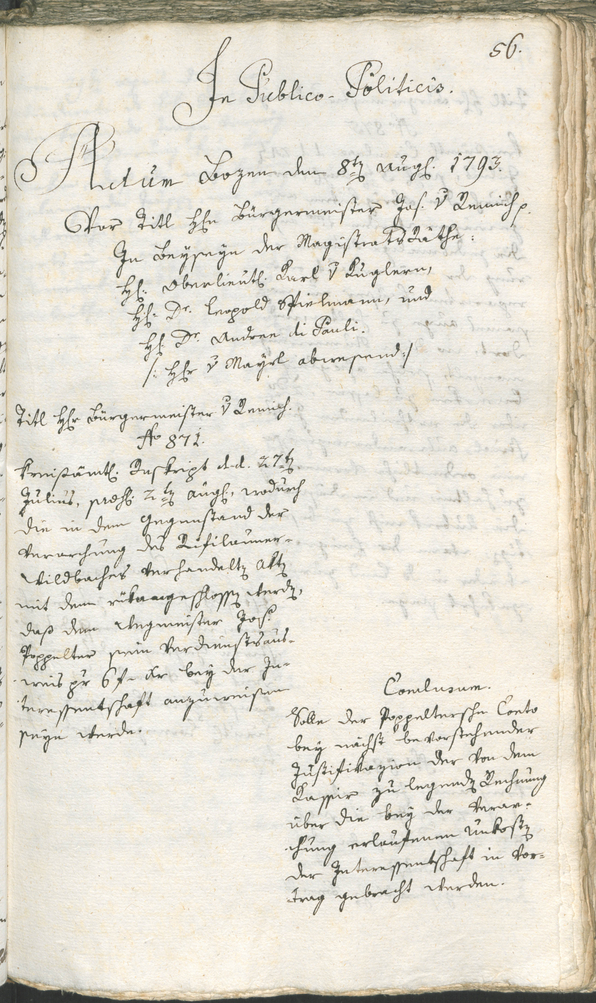 56.
In Publico-Politicis.
Actum Bozen den 8tn Augst. 1793.
Vor Titl Hhn Bürgermeister Jos. v Remich p.
In Beyseyn der MagistratsRäthe:
Hh. Oberlieut. Karl v Kuglern,
Hh. Dr. Leopold Spielmann, und
Hh. Dr. Andree di Pauli.
/: Hhr v Mayrl abwesend :/
Titl Hhr Bürgermeister v Remich.
No 871.
Kreisämtl. Reskript d. d. 27tn
Julius, præs. 2tn Augst., wodurch
die in dem Gegenstand der
Verarchung des Rifilauner-
Wildbaches verhandeltn Aktn
mit dem rükangeschlossn werdn,
daß dem Wegmeister Jos.
Poppelter sein Verdienstsaus-
weis pr 6 f - Xr bey der In-
teressentschaft anzuweisen
seyn werde.
Conclusum.
Solle der Poppeltersche Conto
bey nächst bevorstehender
Justifikazion der von dem
Kassir zu legendn Rechnung
über die bey der Verar-
chung erlaufenen Unkostn
der Interessentschaft in Vor-
trag gebracht werden.